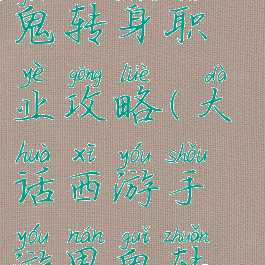 鬼转身职
yè gōng lüè dà
业攻略(大
huà xī yóu shǒu
话西游手
yóu nán guǐ zhuǎn
游男鬼转